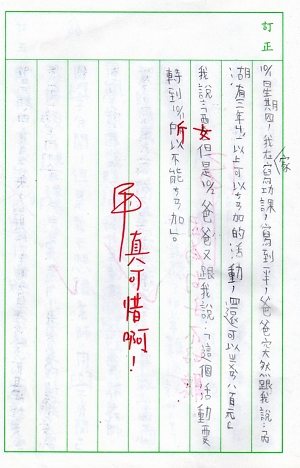 訂正
10/1星期四,我在家寫功課,寫到一半,爸爸突然跟我說:「西
湖有三年以上可以ㄘㄢ加的活動,還可以八百元」
我說:「要」但是10/2爸爸又跟我說:「這個活動要
女
轉到10/11所以不能ㄘㄢ加」。
所
甲真可惜啊!